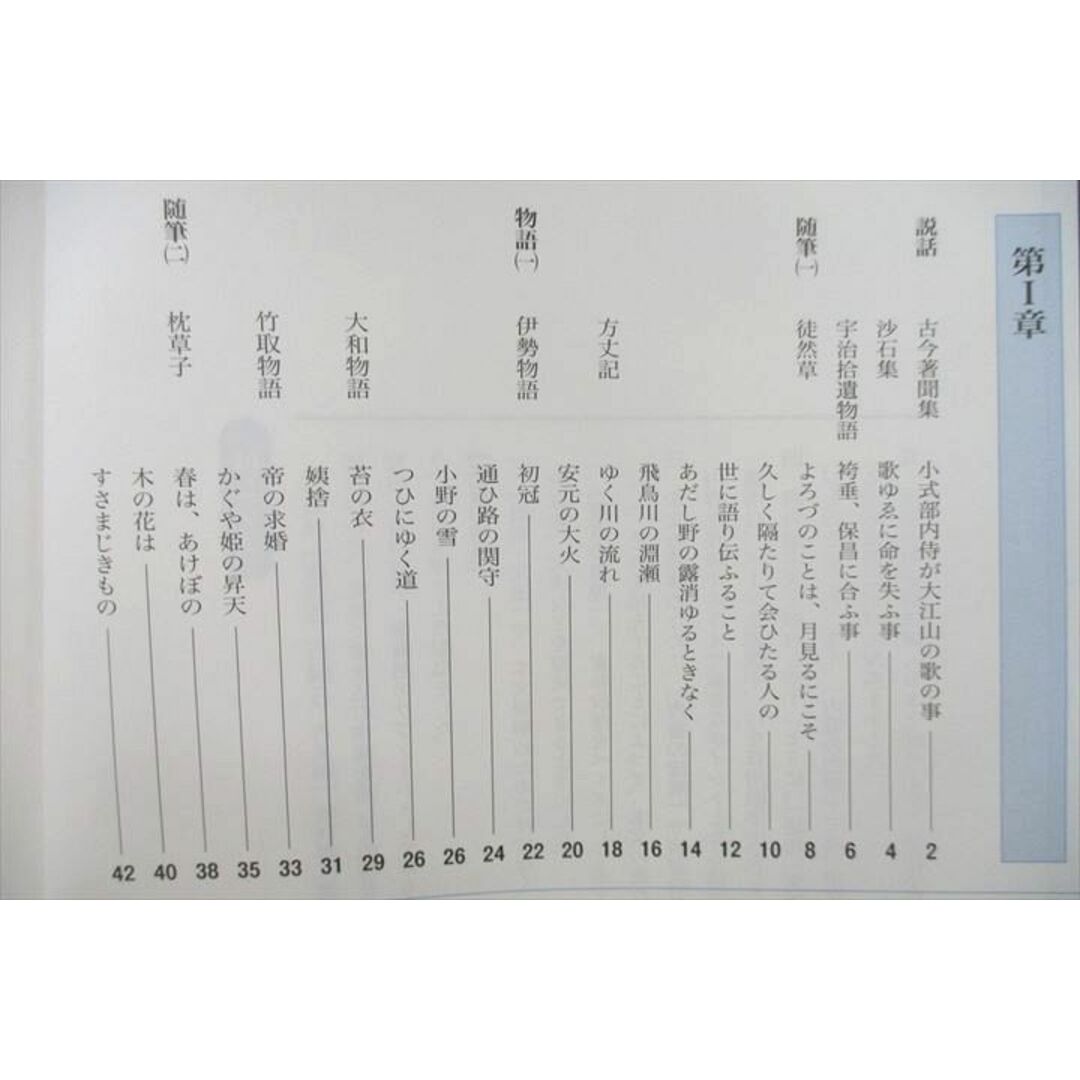 第Ⅰ章
説話 古今著聞集 小式部内侍が大江山の歌の事 2
沙石集 歌ゆゑに命を失ふ事 4
宇治拾遺物語 袴垂、保昌に合ふ事 6
随筆㈠ 徒然草 よろづのことは、月見るにこそ 8
久しく隔たりて会ひたる人の 10
世に語り伝ふること 12
あだし野の露消ゆるときなく 14
飛鳥川の淵瀬 16
方丈記 ゆく川の流れ 18
安元の大火 20
物語㈠ 伊勢物語 初冠 22
通ひ路の関守 24
小野の雪 26
つひにゆく道 26
大和物語 苔の衣 29
姨捨 31
竹取物語 帝の求婚 33
かぐや姫の昇天 35
随筆㈡ 枕草子 春は、あけぼの 38
木の花は 40
すさまじきもの 42